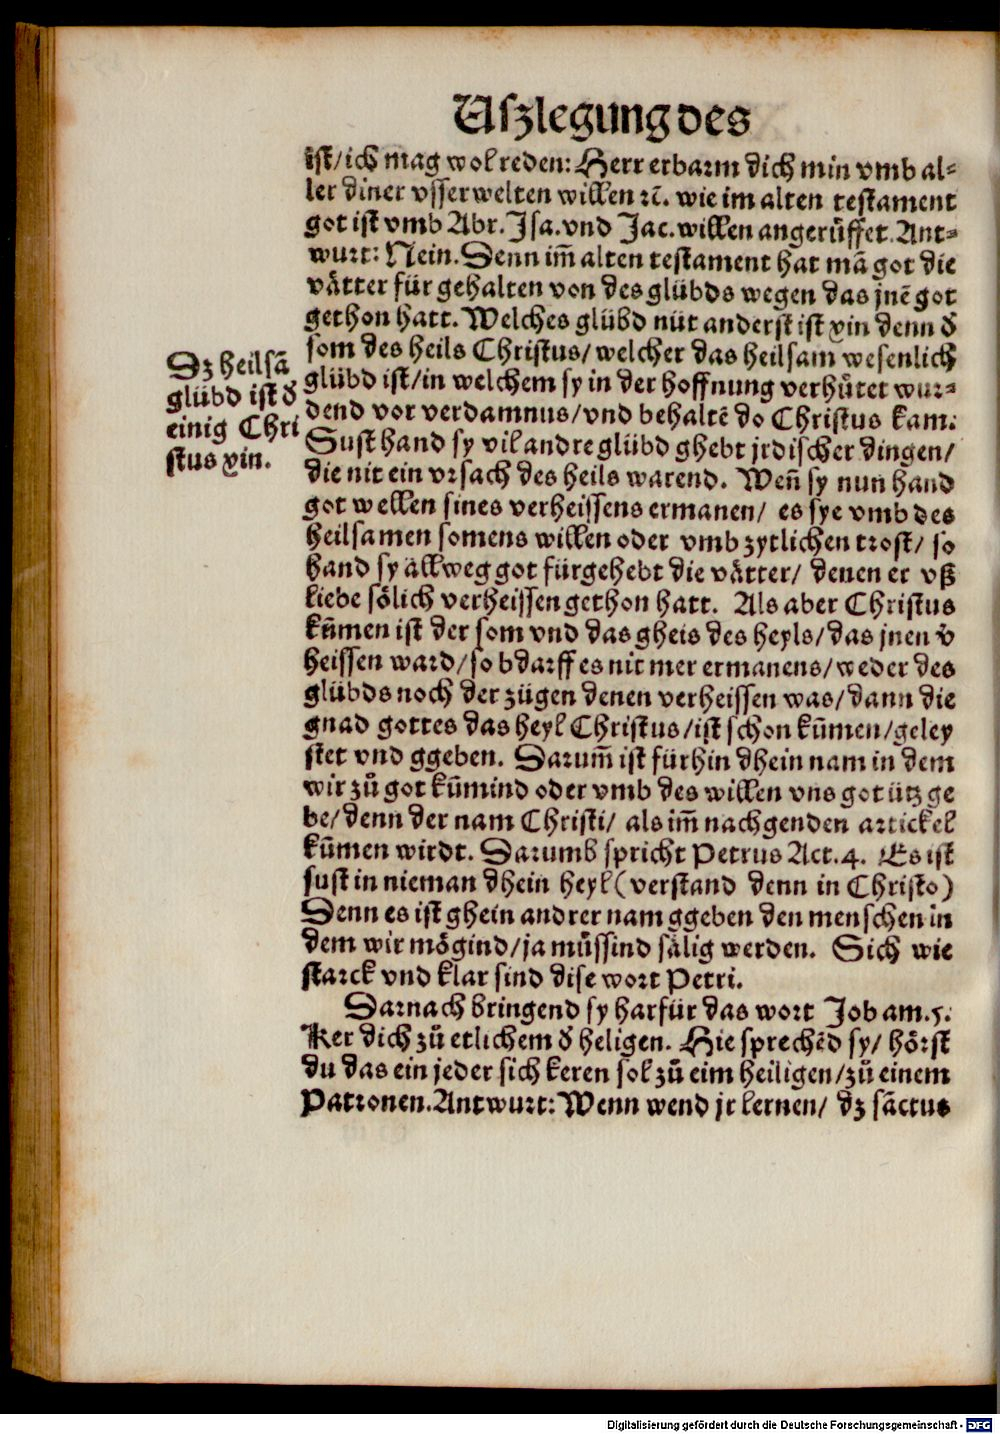 Uſzlegung des
iſt/ich mag wol reden: Herr erbarm dich min vmb al⸗
ler diner vſſerwelten willen ꝛc̄. wie im alten teſtament
got iſt vmb Abr. Iſa. vnd Jac. willen angerůffet. Ant⸗
wurt: Nein. Denn im̄ alten teſtament hat mā got die
vaͤtter für gehalten von des glübds wegen das jnē got
gethon hatt. Welches glübd nüt anderſt iſt xin denn d̕
ſom des heils Chriſtus/ welcher das heilſam weſenlich
glübd iſt/in welchem ſy in der hoffnung verhuͤtet wur⸗
dend vor verdamnus/vnd behaltē do Chriſtus kam.
Suſt hand ſy vil andre glübd ghebt jrdiſcher dingen/
die nit ein vrſach des heils warend. Wen̄ ſy nun hand
got wellen ſines verheiſſens ermanen/ es ſye vmb des
heilſamen ſomens willen oder vmb zytlichen troſt/ ſo
hand ſy aͤllweg got fürgehebt die vaͤtter/ denen er vß
liebe ſoͤlich verheiſſen gethon hatt. Als aber Chriſtus
kūmen iſt der ſom vnd das gheis des heyls/das jnen v̄
heiſſen ward/ſo bdarff es nit mer ermanens/weder des
glübds noch der zügen denen verheiſſen was/dann die
gnad gottes das heyl Chriſtus/iſt ſchon kūmen/geley
ſtet vnd ggeben. Darum̄ iſt fürhin dhein nam in dem
wir zů got kūmind oder vmb des willen vns got ütz ge
be/denn der nam Chriſti/ als im̄ nachgenden artickel
kūmen wirdt. Darumb ſpricht Petrus Act.4. Es iſt
ſuſt in nieman dhein heyl (verſtand denn in Chriſto)
Denn es iſt ghein andrer nam ggeben den menſchen in
dem wir moͤgind/ja muͤſſind ſaͤlig werden. Sich wie
ſtarck vnd klar ſind diſe wort Petri.
Darnach bringend ſy harfür das wort Job am.5.
Ker dich zů etlichem d̕ heligen. Hie ſprechēd ſy/ hoͤrſt
du das ein jeder ſich keren ſol zů eim heiligen/zů einem
Patronen. Antwurt: Wenn wend jr lernen/ dz ſāctus
Dz heilſā
glübd iſt d̕
einig Chri
ſtus xin.
Digitalisierung gefördert durch die Deutsche Forschungsgemeinschaft - DFG